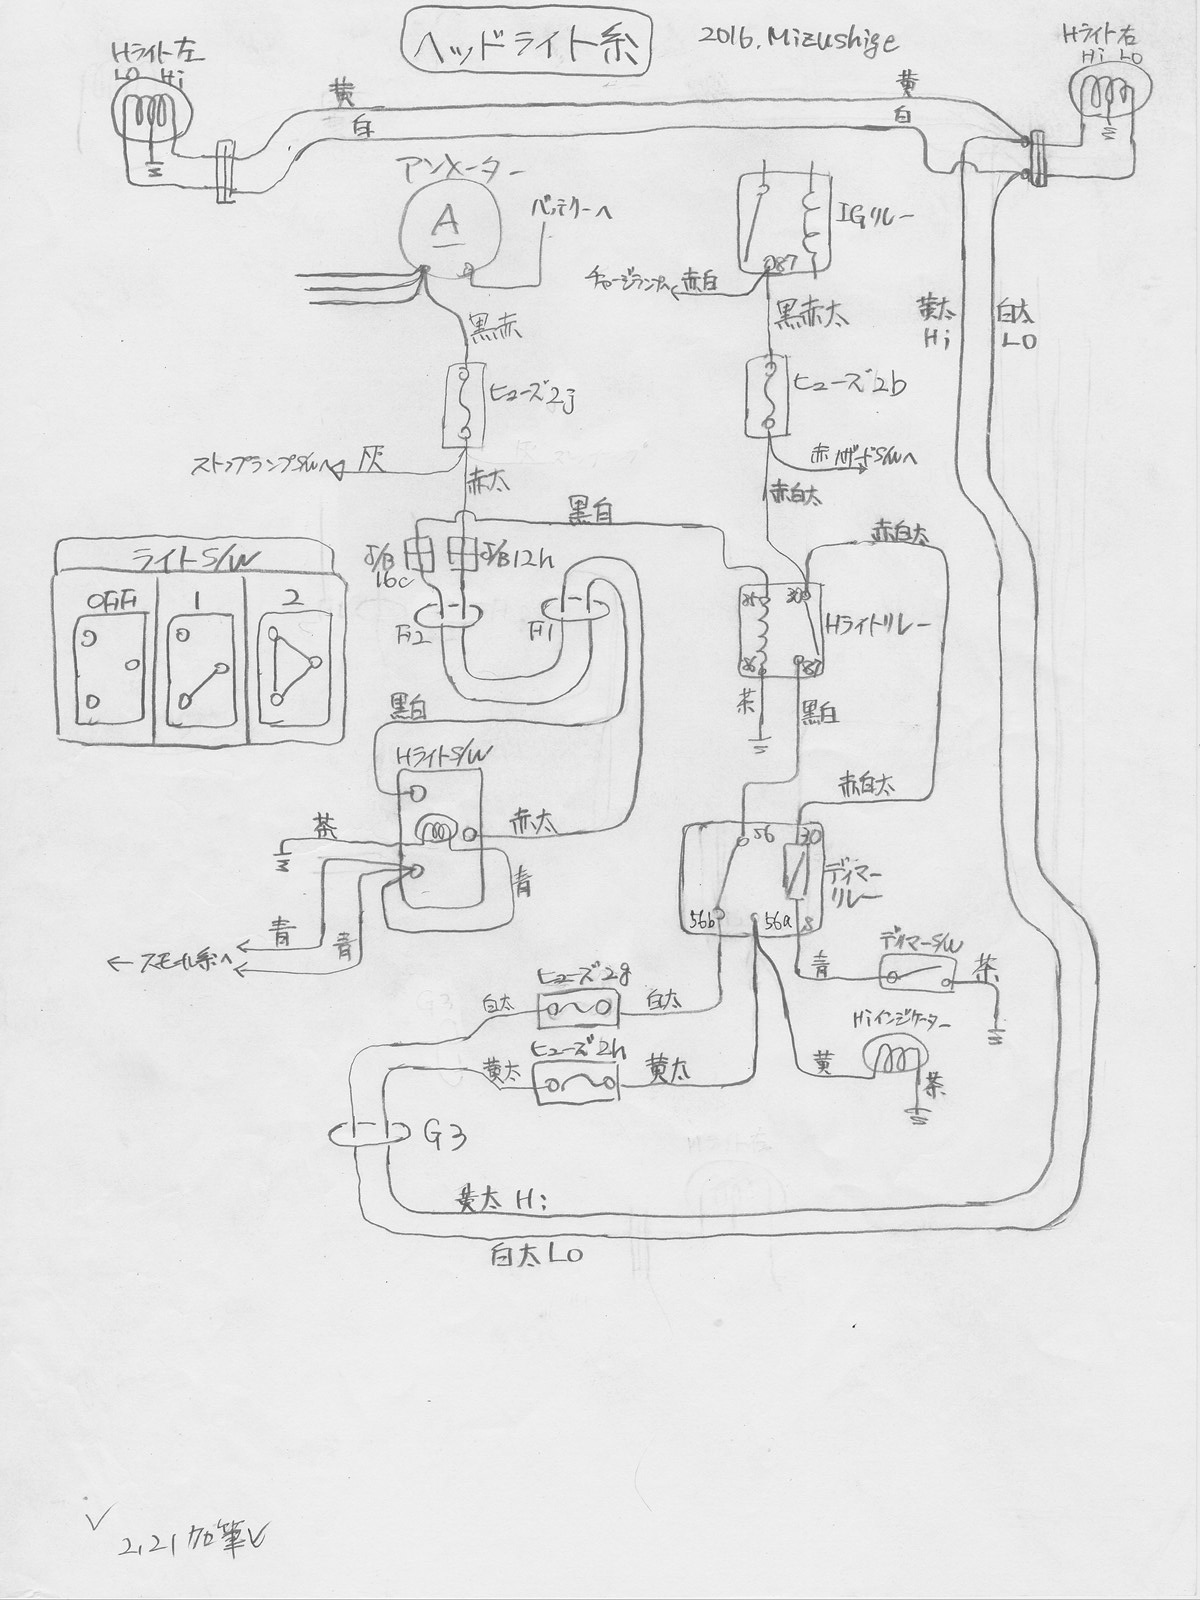 ヘッドライト系
2016. Mizushige
Hライト左
LO Hi
Hライト右
Hi LO
黄
白
黄
白
アンメーター
A
バッテリーへ
IGリレー
87
チャージランプへ 赤白
黒赤
黒赤太
黄太
Hi
白太
LO
ヒューズ2j
ヒューズ2b
ストップランプS/Wへ 灰
赤 ハザードS/Wへ
赤太
赤白太
黒白
赤白太
ライトS/W
OFF 1 2
J/B
16c
J/B12h
F12
F1
85 30
Hライトリレー
86 87
茶
黒白
黒白
HライトS/W
茶
赤太
赤白太
青
56 30
ディマー
リレー
56b 56a S
青
青
← スモール系へ
青
ディマーS/W
茶
ヒューズ2g
白太
白太
Hiインジケーター
ヒューズ2h
黄太
黄太
黄
茶
G3
黄太 Hi
白太 LO
2,21 加筆